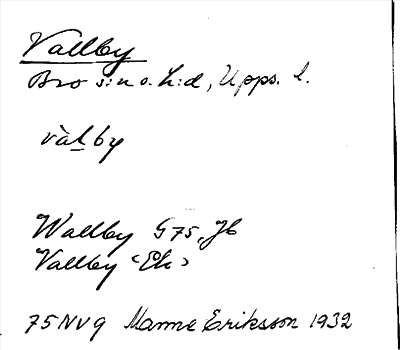 Vallby
Bro s:n o. h:d, Upps. l.
vàḻby
Wallby G 75, Jb
Vallby (Ek)
75 NV 9 Manne Eriksson 1932